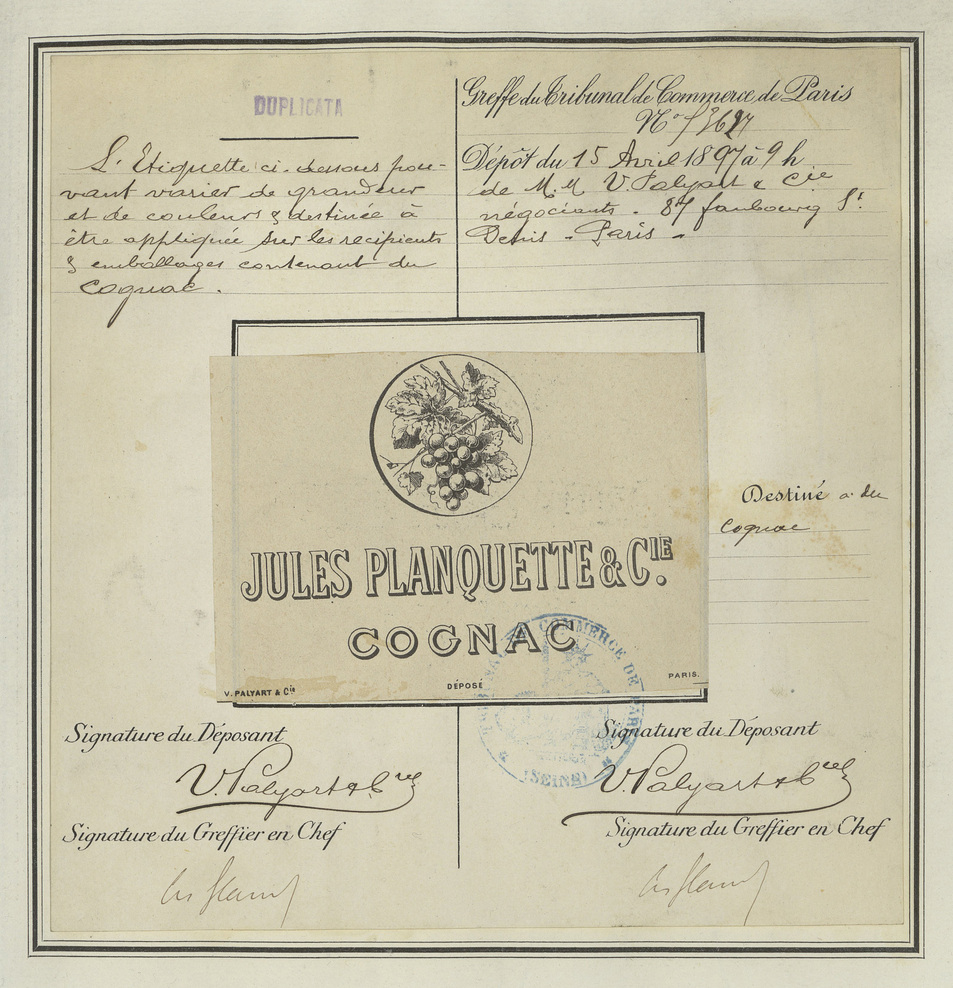 DUPLICATA
L'Etiquette ci-dessous pou-
vant varier de grandeur
et de couleurs & destinée à
être appliquée sur les recipients
& emballages contenant du
cognac.
Greffe du Tribunal de Commerce de Paris
No
Dépôt du 15 Avril 1897 à 9 h
de M.M V. Palyart & Cie
négociants - 87 faubourg St
Denis - Paris -
JULES PLANQUETTE & CIE.
COGNAC
V. PALYART & Cie
DÉPOSÉ
PARIS.
Destiné a du
cognac
TRIBUNAL DE COMMERCE DE PARIS
(SEINE)
Signature du Déposant
V. Palyart & Cie
Signature du Greffier en Chef
Signature du Déposant
V. Palyart & Cie
Signature du Greffier en Chef